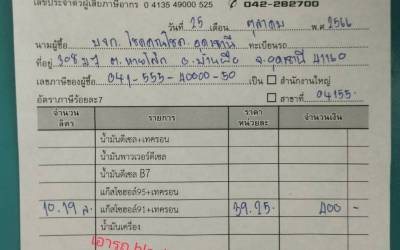 เลขประจำตัวผู้เสียภาษีอากร 0 4135 49000 525 042-282700
วันที่ 25 เดือน ตุลาคม พ.ศ 2566
นามผู้ซื้อ หจก. โชคคูณโชค อุดรธานี ทะเบียนรถ
ที่อยู่ 308 ม.7 ต.หายโศก อ.บ้านผือ จ.อุดรธานี 41160
เลขภาษีของผู้ซื้อ 041-555-40000-50 เป็น สำนักงานใหญ่
อัตราภาษีร้อยละ7 สาขาที่ 04155
จำนวนลิตร รายการ ราคาหน่วยละ จำนวนเงิน
น้ำมันดีเซล+เทครอน
น้ำมันพาวเวอร์ดีเซล
น้ำมันดีเซล B7
แก๊สโซฮอล์95+เทครอน
10.19 ล. แก๊สโซฮอล์91+เทครอน 39.25 400 -
น้ำมันเครื่อง